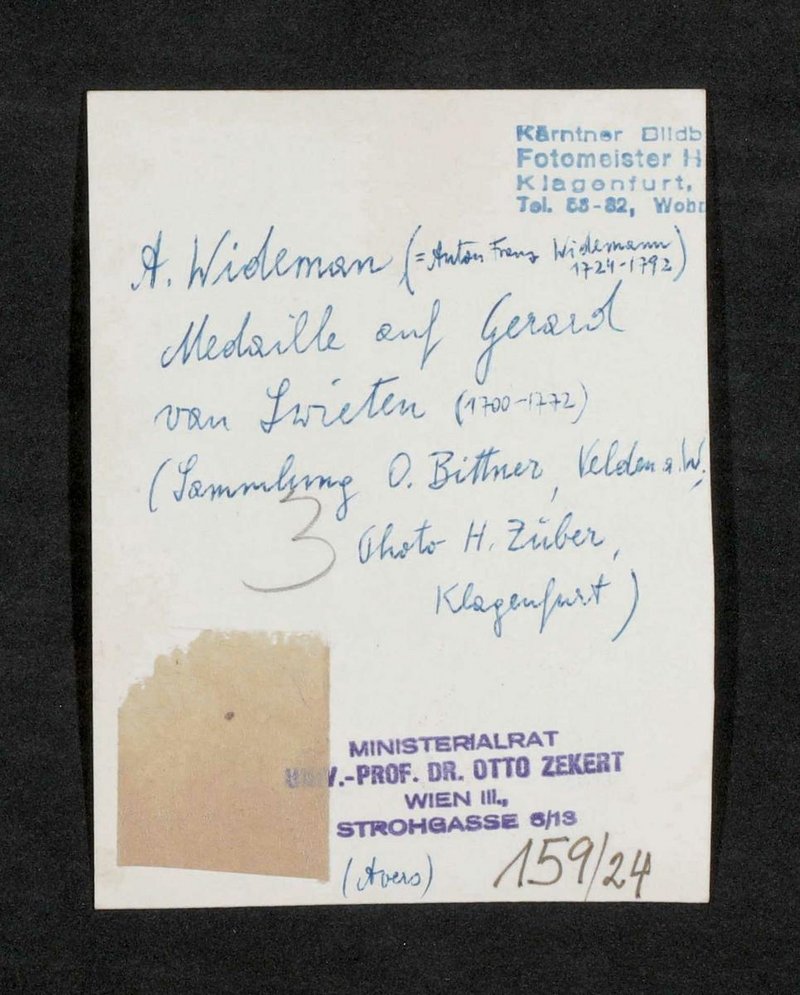 Kärntner Bildb
Fotomeister H
Klagenfurt,
Tel. 58-82, Wohn
A. Wideman (= Anton Franz Widemann
1724-1792)
Medaille auf Gerard
van Swieten (1700-1772)
(Sammlung O. Bittner, Velden a. W.,
3
Photo H. Züber,
Klagenfurt)
MINISTERIALRAT
UNIV.-PROF. DR. OTTO ZEKERT
WIEN III.,
STROHGASSE 6/13
(Avers)
159/24